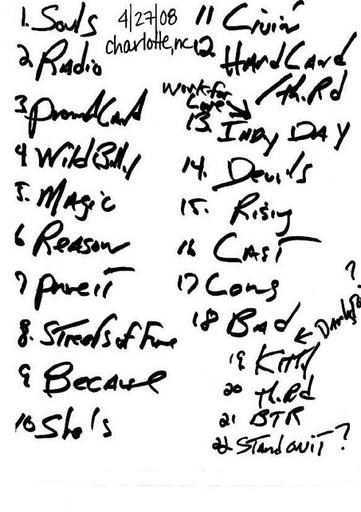 4/27/08
charlotte, nc
1. Souls
2 Radio
3
4 Wild Billy
5. Magic
6 Reason
7 Prove it
8. Streets of Fire
9 Because
10 She's
11 Livin'
12 Hard Land
/Th.Rd
Work for
Love
13. Indy Day
14. Devils
15. Rising
16 Last
17 Long
18 Bad
?
19 Kitty
20 Th.Rd
21 BTR
22 Stand on it ?